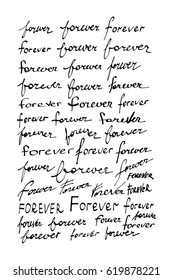 forever forever forever
forever forever forever
forever forever forever
forever forever forever
forever forever forever
forever forever forever
forever forever forever
forever forever forever
forever forever forever
forever Forever Forever FOREVER
FOREVER Forever forever
forever forever forever forever
forever forever forever
619878221